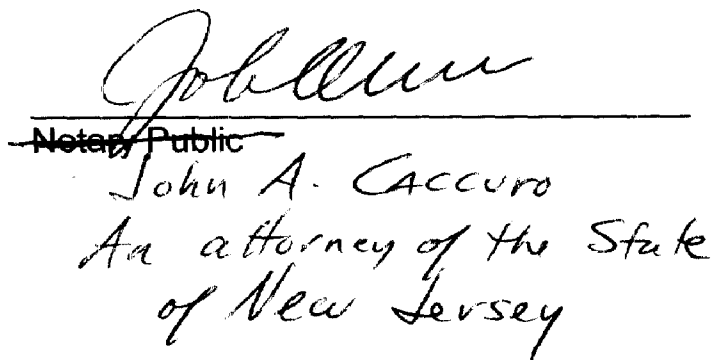 Notary Public
John A. Caccuro
An attorney of the State
of New Jersey